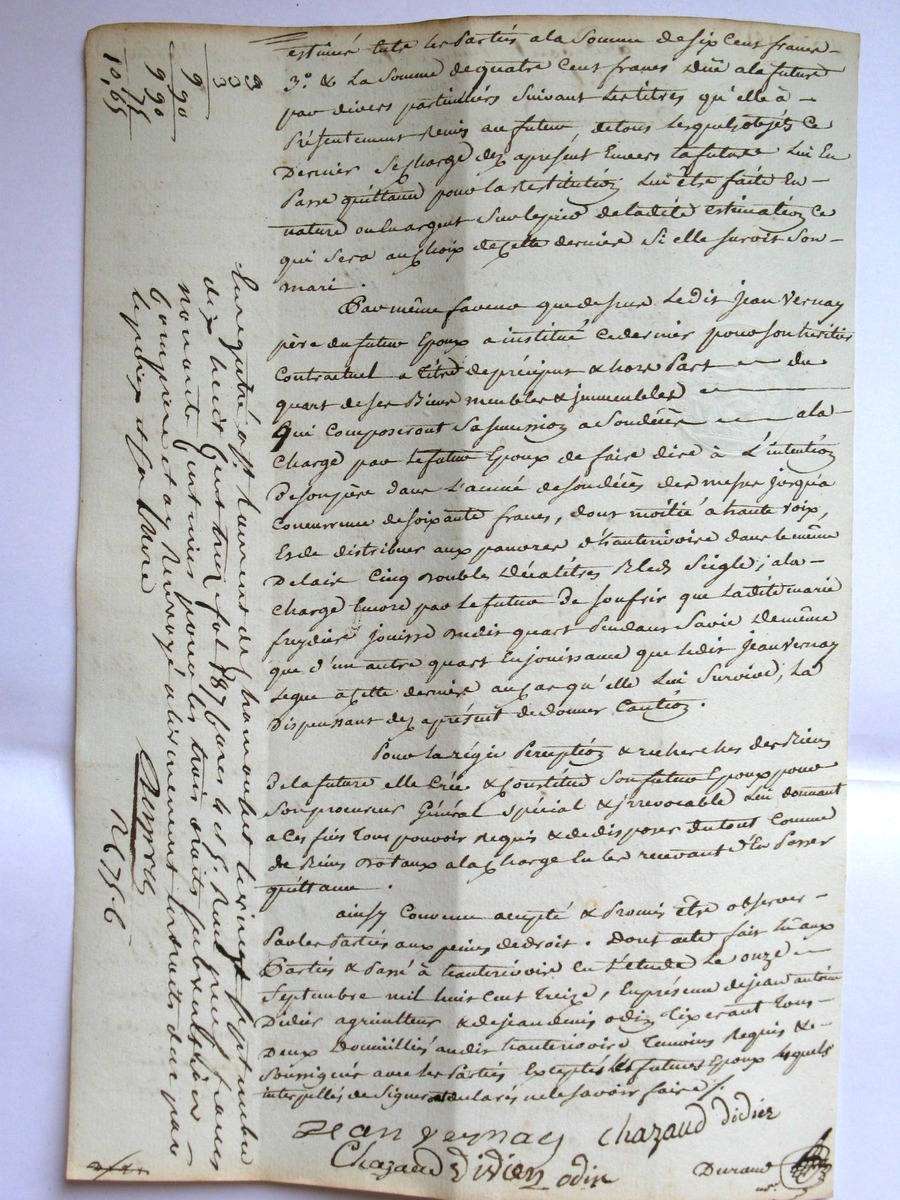 estimés entre les Parties a la Somme de six Cent francs
3.° & La Somme de quatre Cent francs Düe a la future
par divers particuliers Suivant Les titres qu'elle à
Présentement Remis au futur, de tous Lesquels objets Ce
Dernier Se Charge dez apresent Envers la future Lui En
Passe quittance pour la restitution Lui être faite En
nature ou En argent Sur le pied de ladite estimation Ce
qui Sera au Choix de Cette dernière Si elle survit Son
mari.
Par même faveur que dessus Ledit Jean Vernay
père du futur Epoux a institué Ce dernier pour Son heritier
Contractuel a titre de préciput & hors Part du
quart de Ses Biens meubles & immeubles
Qui Composeront Sa Succession a Son décès a la
Charge par le futur Epoux de faire dire à L'intention
De Son père dans L'année de Son décès des messes jusqu'a
Concurrence de Soixante francs, dont moitié a haute voix,
Et de distribuer aux pauvres d'hauterivoire dans le même
Delais Cinq doubles Décalitres Bled Seigle; a la
Charge Encore par le futur De Souffrir que Ladite marie
freydière jouisse dudit quart Pendant Sa vie De même
que d'un autre quart En jouissance que ledit Jean Vernay
Legue a Cette dernière au Cas qu'elle Lui Survive, La
Dispensant dez aprésent de donner Caution.
Pour la régie Perception & recherches des Biens
De la future elle Crée & Constitue Son futur Epoux pour
Son procureur Général Spécial & irrevocable Lui donnant
a Ces fins Tous pouvoir Requis & de disposer du tout Comme
De Biens dotaux a la Charge En les recevant d'En Passer
quittance.
ainsy Convenu accepté & Promis être observer
Par les Parties aux peines de droit. Dont acte fait lû aux
Parties & Passé à hauterivoire En L'étude Le onze
Septembre mil huit Cent Treize, En présence de jean antoine
Didier agriculteur & de jean denis odin Tixerant Tous
Deux Domiciliés audit hauterivoire Temoins Requis &
Soussignés avec les Parties Exceptés les futurs Epoux Lesquels
interpellés de Signer ont declarés ne le Savoir faire /.
Jean Vernay Chazaud didier
Chazaud Didier odin Durand
no.
Enregistré à St Laurent de Chamousset le vingt Sept septembre
dix huit Cent treize fol 187
nonante Centimes pour les trois droits
compris et a Renvoyé
3
3
9 90
9 90
75
10,65